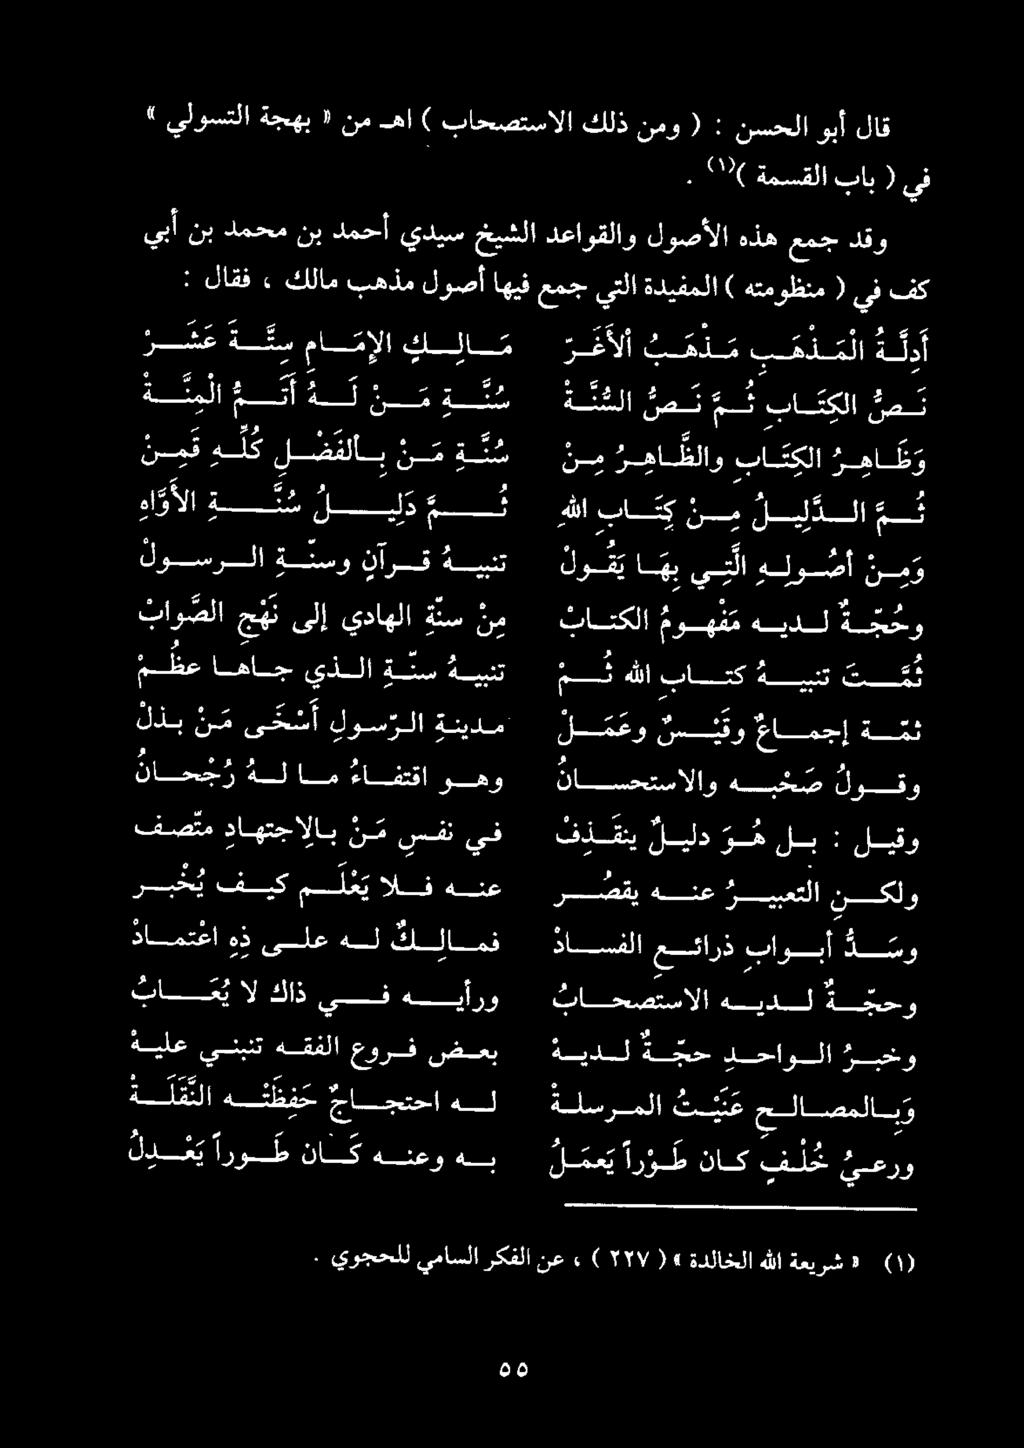 قال أبو الحسن : ( ومن ذلك الاستصحاب ) اهـ من « بهجة التسولي »
في ( باب القسمة )(١) .
وقد جمع هذه الأصول والقواعد الشيخ سيدي أحمد بن محمد بن أبي
كف في ( منظومته ) المفيدة التي جمع فيها أصول مذهب مالك ، فقال :
أَدِلَّةُ الْمَذْهَبِ مَذْهَبُ الأَغَرّ مَالِكٍ الإِمَامِ سِتَّةَ عَشَرْ
نَصُّ الكِتَابِ ثُمَّ نَصُّ السُّنَّةْ سُنَّةِ مَنْ لَهُ أَتَمُّ المِنَّةْ
وَظَاهِرُ الكِتَابِ والظَّاهِرُ مِنْ سُنَّةِ مَنْ بِالفَضْلِ كُلِّهِ قَمِنْ
ثُمَّ الدَّلِيلُ مِنْ كِتَابِ اللهِ ثُمَّ دَلِيلُ سُنَّةِ الأَوَّاهِ
وَمِنْ أُصُولِهِ الَّتِي بِهَا يَقُولْ تنبيهُ قرآنٍ وسنَّةِ الرسولْ
وحُجَّةٌ لديه مَفْهُومُ الكتابْ مِنْ سنَّةِ الهادي إلى نَهْجِ الصَّوابْ
ثُمَّتَ تنبيهُ كتابِ الله ثُمْ تنبيهُ سنَّةِ الذي جاهاً عَظُمْ
ثمَّةَ إجماعٌ وقَيْسٌ وعَمَلْ مدينةِ الرَّسولِ أَسْخَى مَنْ بذلْ
وقولُ صَحْبِه والاستحسانُ وهو اقتفاءُ ما لهُ رُجْحَانُ
وقيل : بل هُوَ دليلٌ ينقَذِفْ في نفسِ مَنْ بالاجتهادِ متَّصفْ
ولكنِ التعبيرُ عنه يقصُر عنه فلا يَعْلَم كيف يُخْبر
وسَدُّ أبوابِ ذرائعِ الفسادْ فمالِكٌ له على ذِهِ اعْتمادْ
وحجَّةٌ لديه الاستصحابُ ورأيه في ذاك لا يُعَابُ
وخبرُ الواحدِ حجَّةٌ لديهْ بعضُ فروعِ الفقه تنبني عليهْ
وَبالمصالحِ عَنَيْتُ المرسلةْ له احتجاجٌ حَفِظَتْه النَّقَلَةْ
ورعيُ خُلْفٍ كان طَوْراً يَعمَلُ به وعنه كَان طَوراً يَعْدِلُ
(١) « شريعة الله الخالدة » ( ٢٢٧ ) ، عن الفكر السامي للحجوي .
٥٥